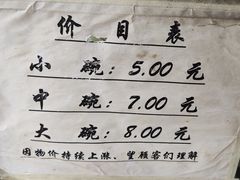 价目表
小碗：5.00 元
中碗：7.00 元
大碗：8.00 元
因物价持续上涨、望顾客们理解